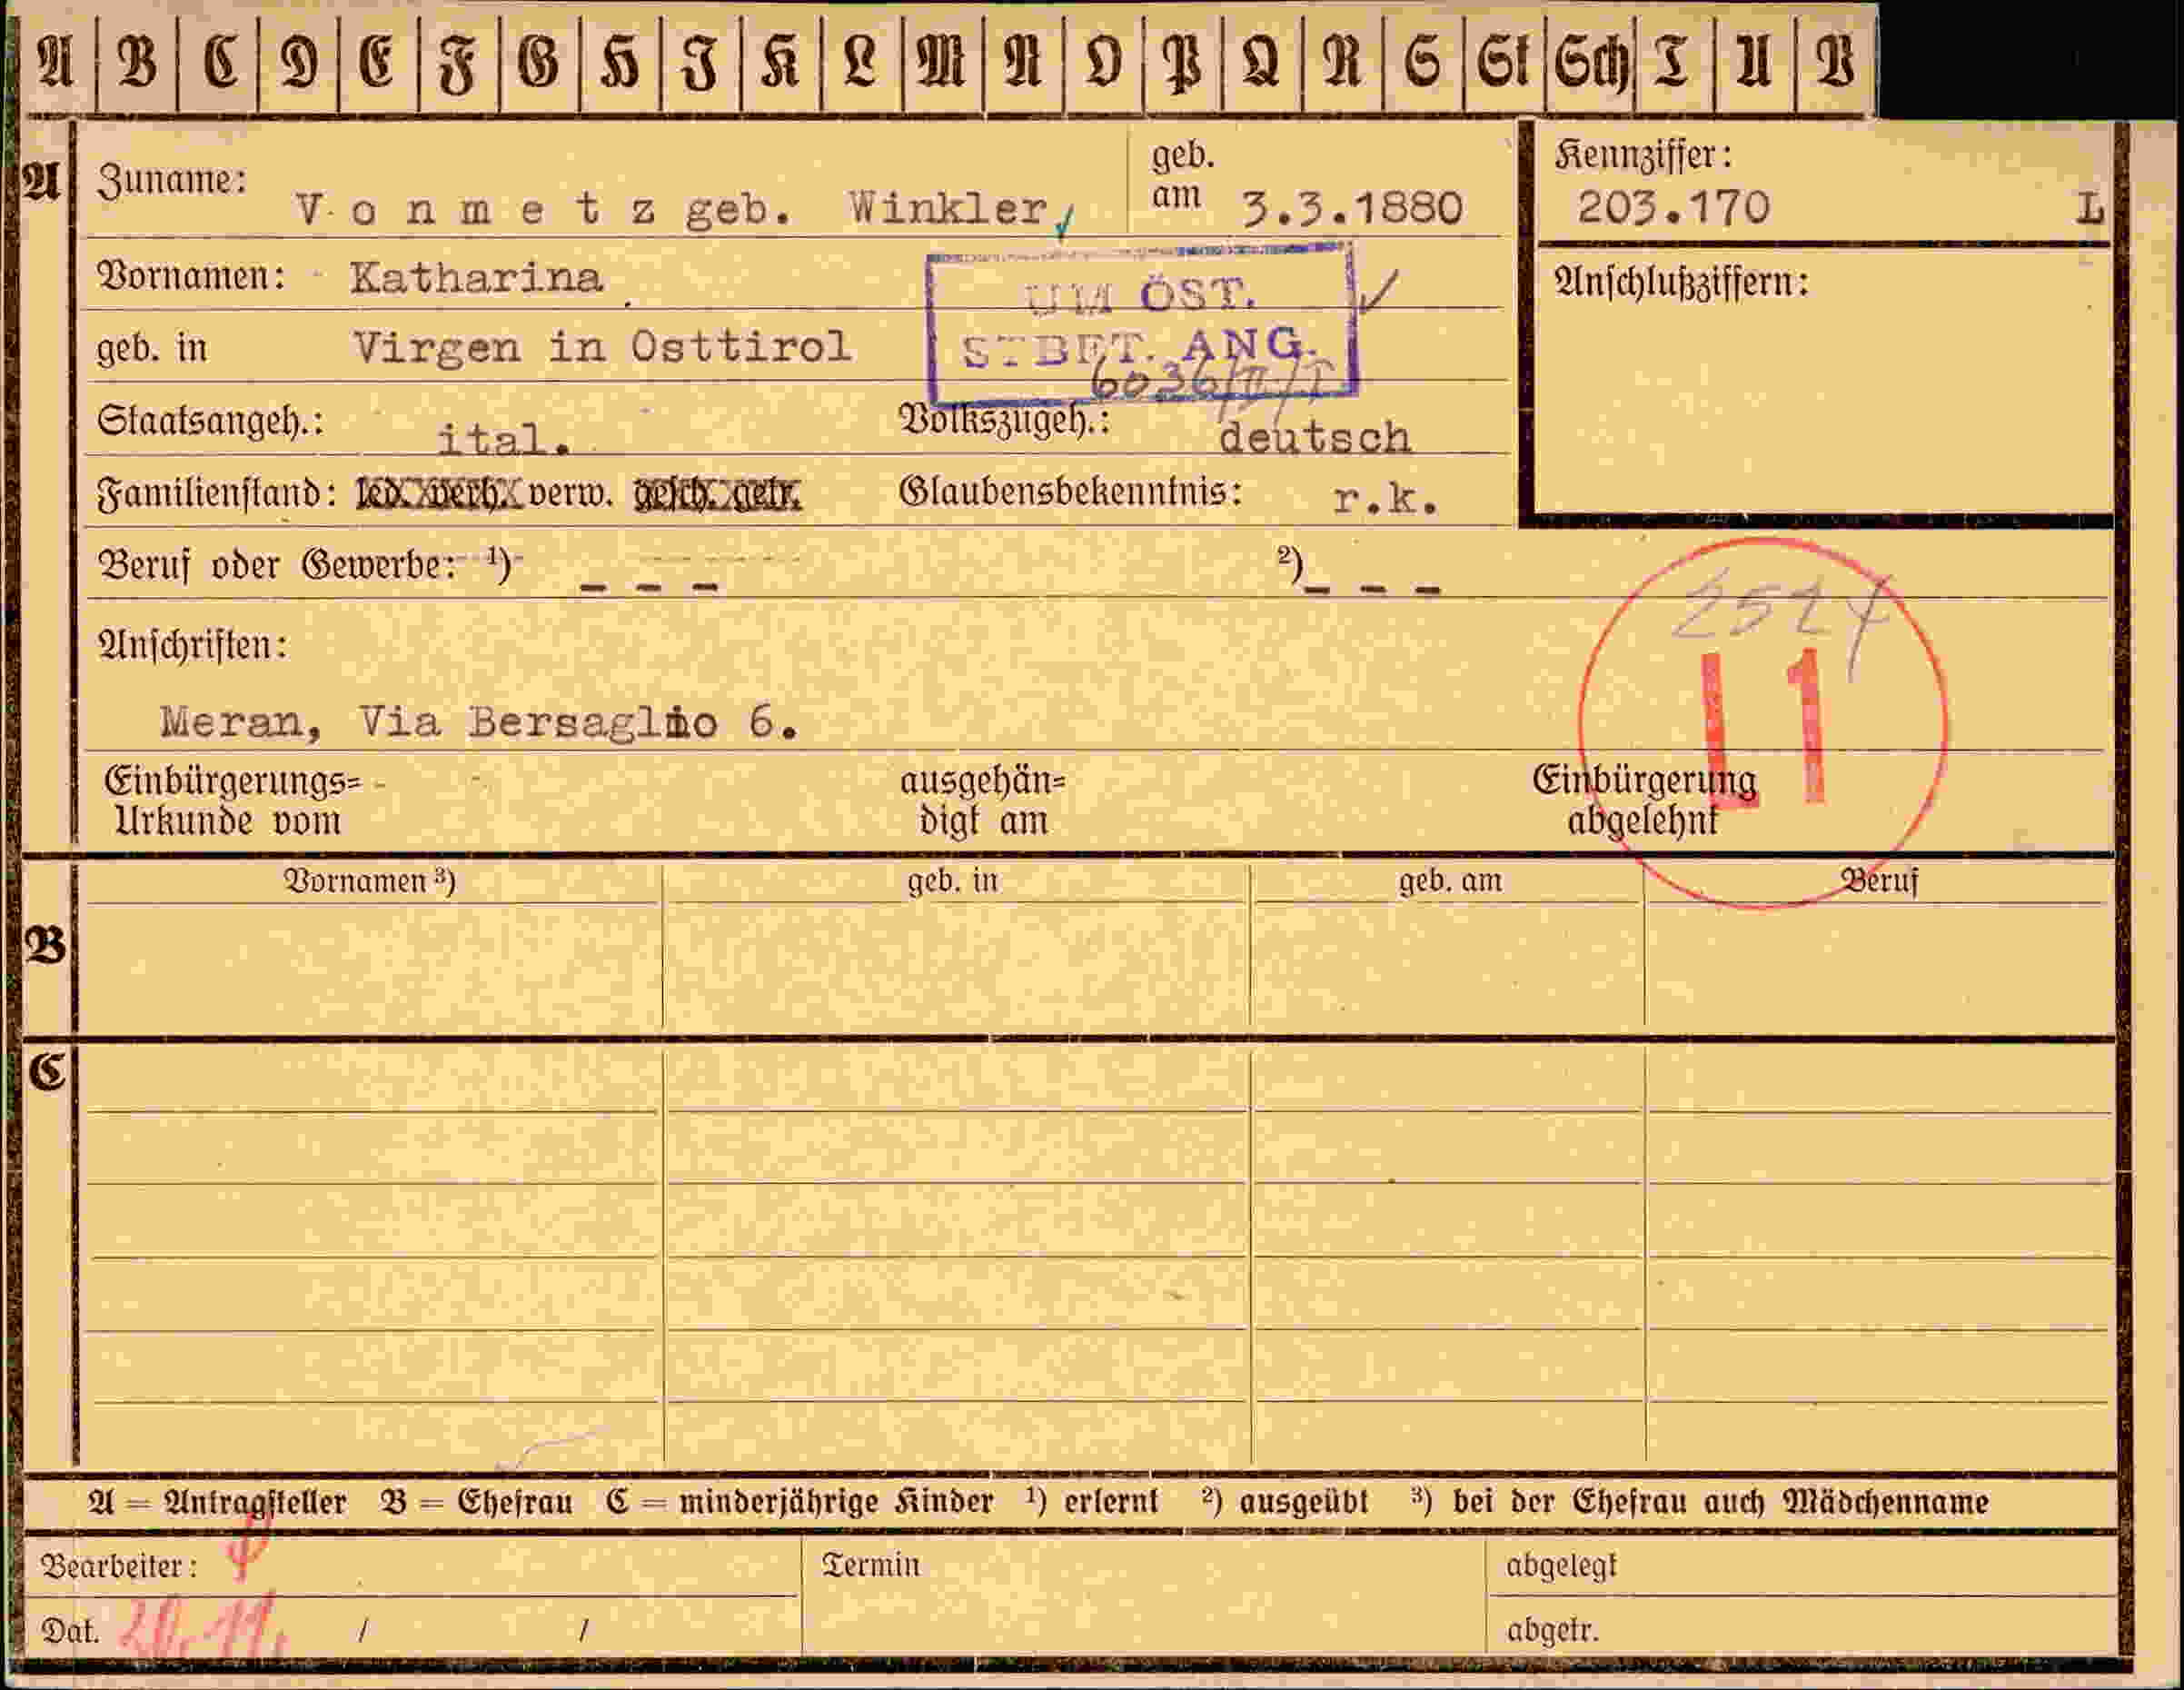 A B C D E F G H I K L M N O P Q R S St Sch T U V
A Zuname: Vonmetz geb. Winkler geb. am 3.3.1880
Kennziffer: 203.170 L
Vornamen: Katharina
UM ÖST.
STBET. ANG.
6036/II/T
Anschlußziffern:
geb. in Virgen in Osttirol
Staatsangeh.: ital. Volkszugeh.: deutsch
Familienstand: led. verh. verw. gesch. getr. Glaubensbekenntnis: r.k.
Beruf oder Gewerbe: 1) - - - 2) - - -
Anschriften:
2524
L1
Meran, Via Bersaglio 6.
Einbürgerungs= ausgehän= Einbürgerung
Urkunde vom digt am abgelehnt
B Vornamen 3) geb. in geb. am Beruf
C
A = Antragsteller B = Ehefrau C = minderjährige Kinder 1) erlernt 2) ausgeübt 3) bei der Ehefrau auch Mädchenname
Bearbeiter: Termin abgelegt
Dat. / / abgetr.